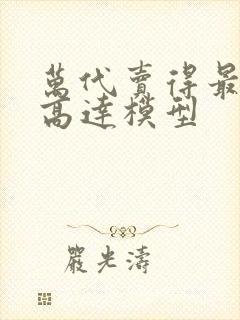 萬代賣得最
高達模型
嚴光濤